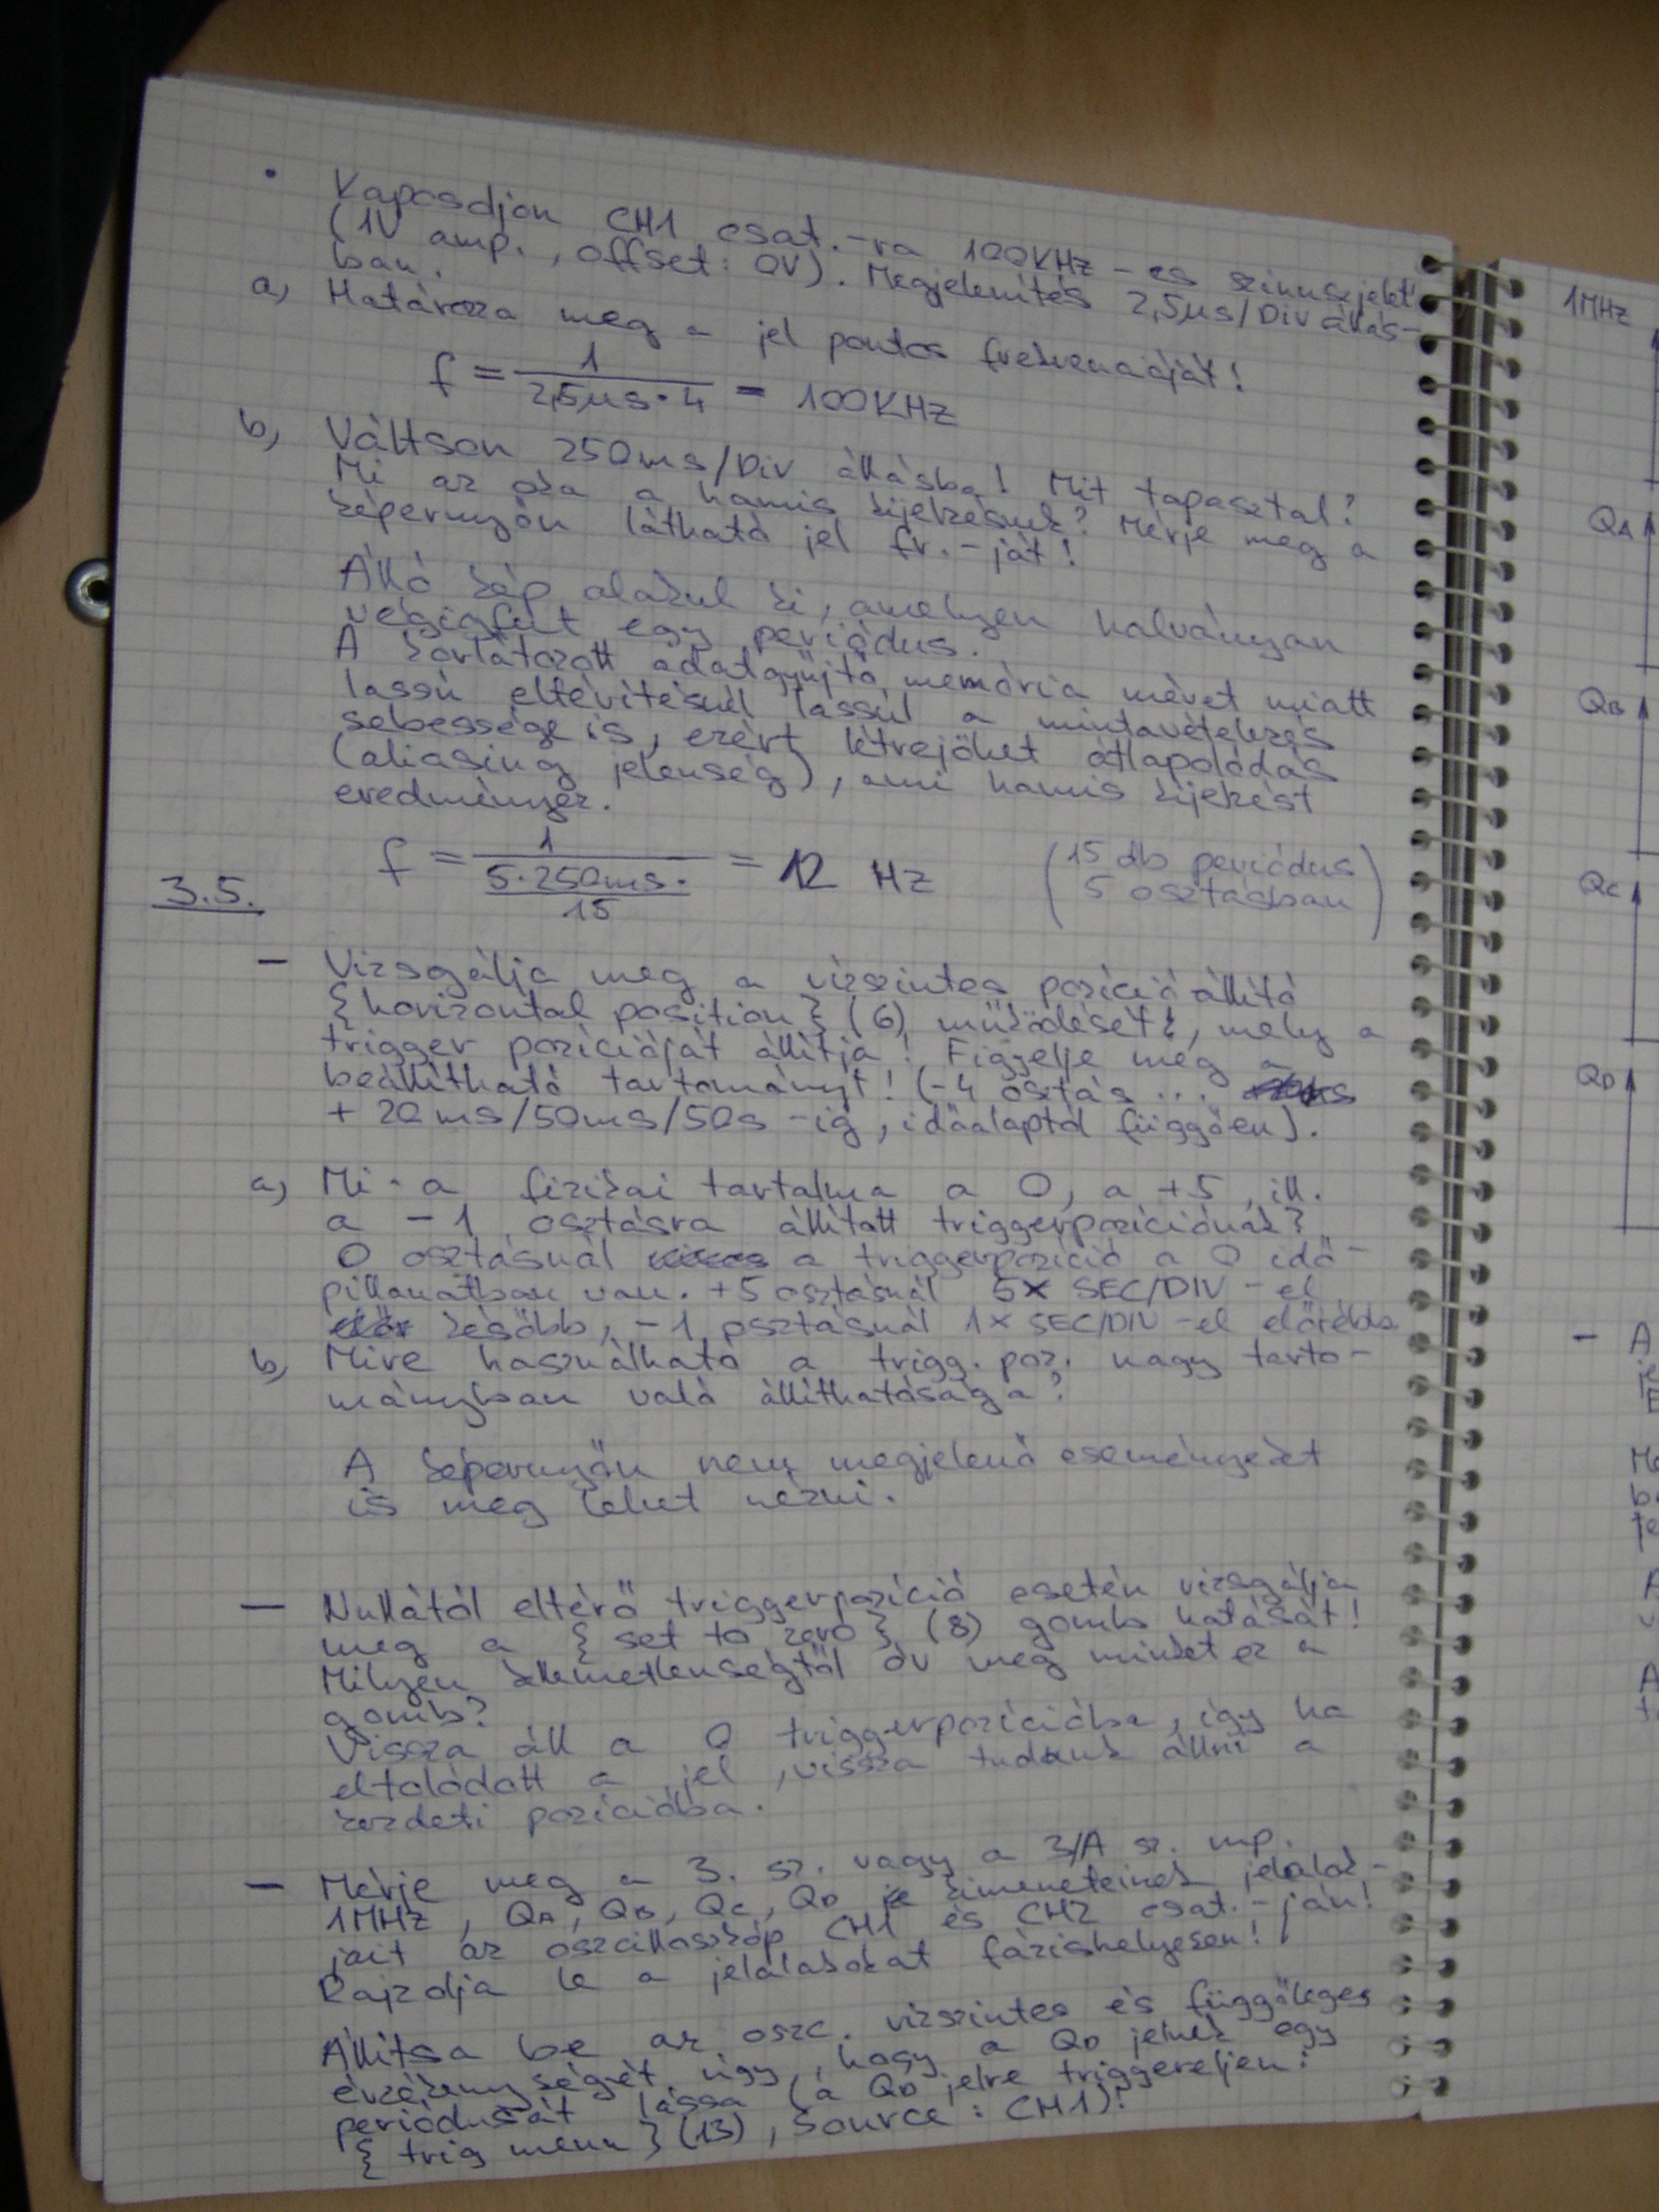 • Kapcsoljon CH1 csat.-ra 100KHz-es szinuszjelet
(1V amp., offset: 0V). Megjelenítés 2,5µs/Div állás-
ban.
a, Határozza meg a jel pontos frekvenciáját!
f = 1 / 2,5µs·4 = 100KHz
b, Váltson 250ms/Div állásba! Mit tapasztal?
Mi az oka a hamis kijelzésnek? Mérje meg a
képernyőn látható jel fr.-ját!
Álló kép alakul ki, amelyen halványan
végigfut egy periódus.
A korlátozott adatgyűjtő memória méret miatt
lassú eltérítésnél lassul a mintavételezés
sebessége is, ezért létrejöhet átlapolódás
(aliasing jelenség), ami hamis kijelzést
eredményez.
f = 1 / 5·250ms· / 15 = 12 Hz (15 db periódus
5 osztásban)
3.5.
– Vizsgálja meg a vízszintes pozíció állító
{horizontal position} (6) működését!, mely a
trigger pozícióját állítja! Figyelje meg a
beállítható tartományt! (-4 osztás ...
+ 20ms/50ms/50s -ig, időalaptól függően).
a, Mi a fizikai tartalma a 0, a +5, ill.
a -1 osztásra állított triggerpozíciónak?
0 osztásnál a triggerpozíció a 0 idő-
pillanatban van. +5 osztásnál 5x SEC/DIV -el
később, -1 osztásnál 1x SEC/DIV -el előrébb.
b, Mire használható a trigg. poz. nagy tarto-
mányban való állíthatósága?
A képernyőn nem megjelenő eseményeket
is meg lehet nézni.
– Nullától eltérő triggerpozíció esetén vizsgálja
meg a {set to zero} (8) gomb hatását!
Milyen kellemetlenségtől óv meg minket ez a
gomb?
Vissza áll a 0 triggerpozícióba, így ha
eltolódott a jel, vissza tudunk állni a
kezdeti pozícióba.
– Mérje meg a 3. sz. vagy a 3/A sz. mp.
1MHz, QA, QB, QC, QD kimeneteinek jelalak-
jait az oszcilloszkóp CH1 és CH2 csat.-ján!
Rajzolja le a jelalakokat fázishelyesen!
Állítsa be az oszc. vízszintes és függőleges
érzékenységét úgy, hogy a QD jelnek egy
periódusát lássa (a QD jelre triggereljen:
{trig menu} (13), Source: CH1)!
1MHz
QA
QB
QC
QD
– A